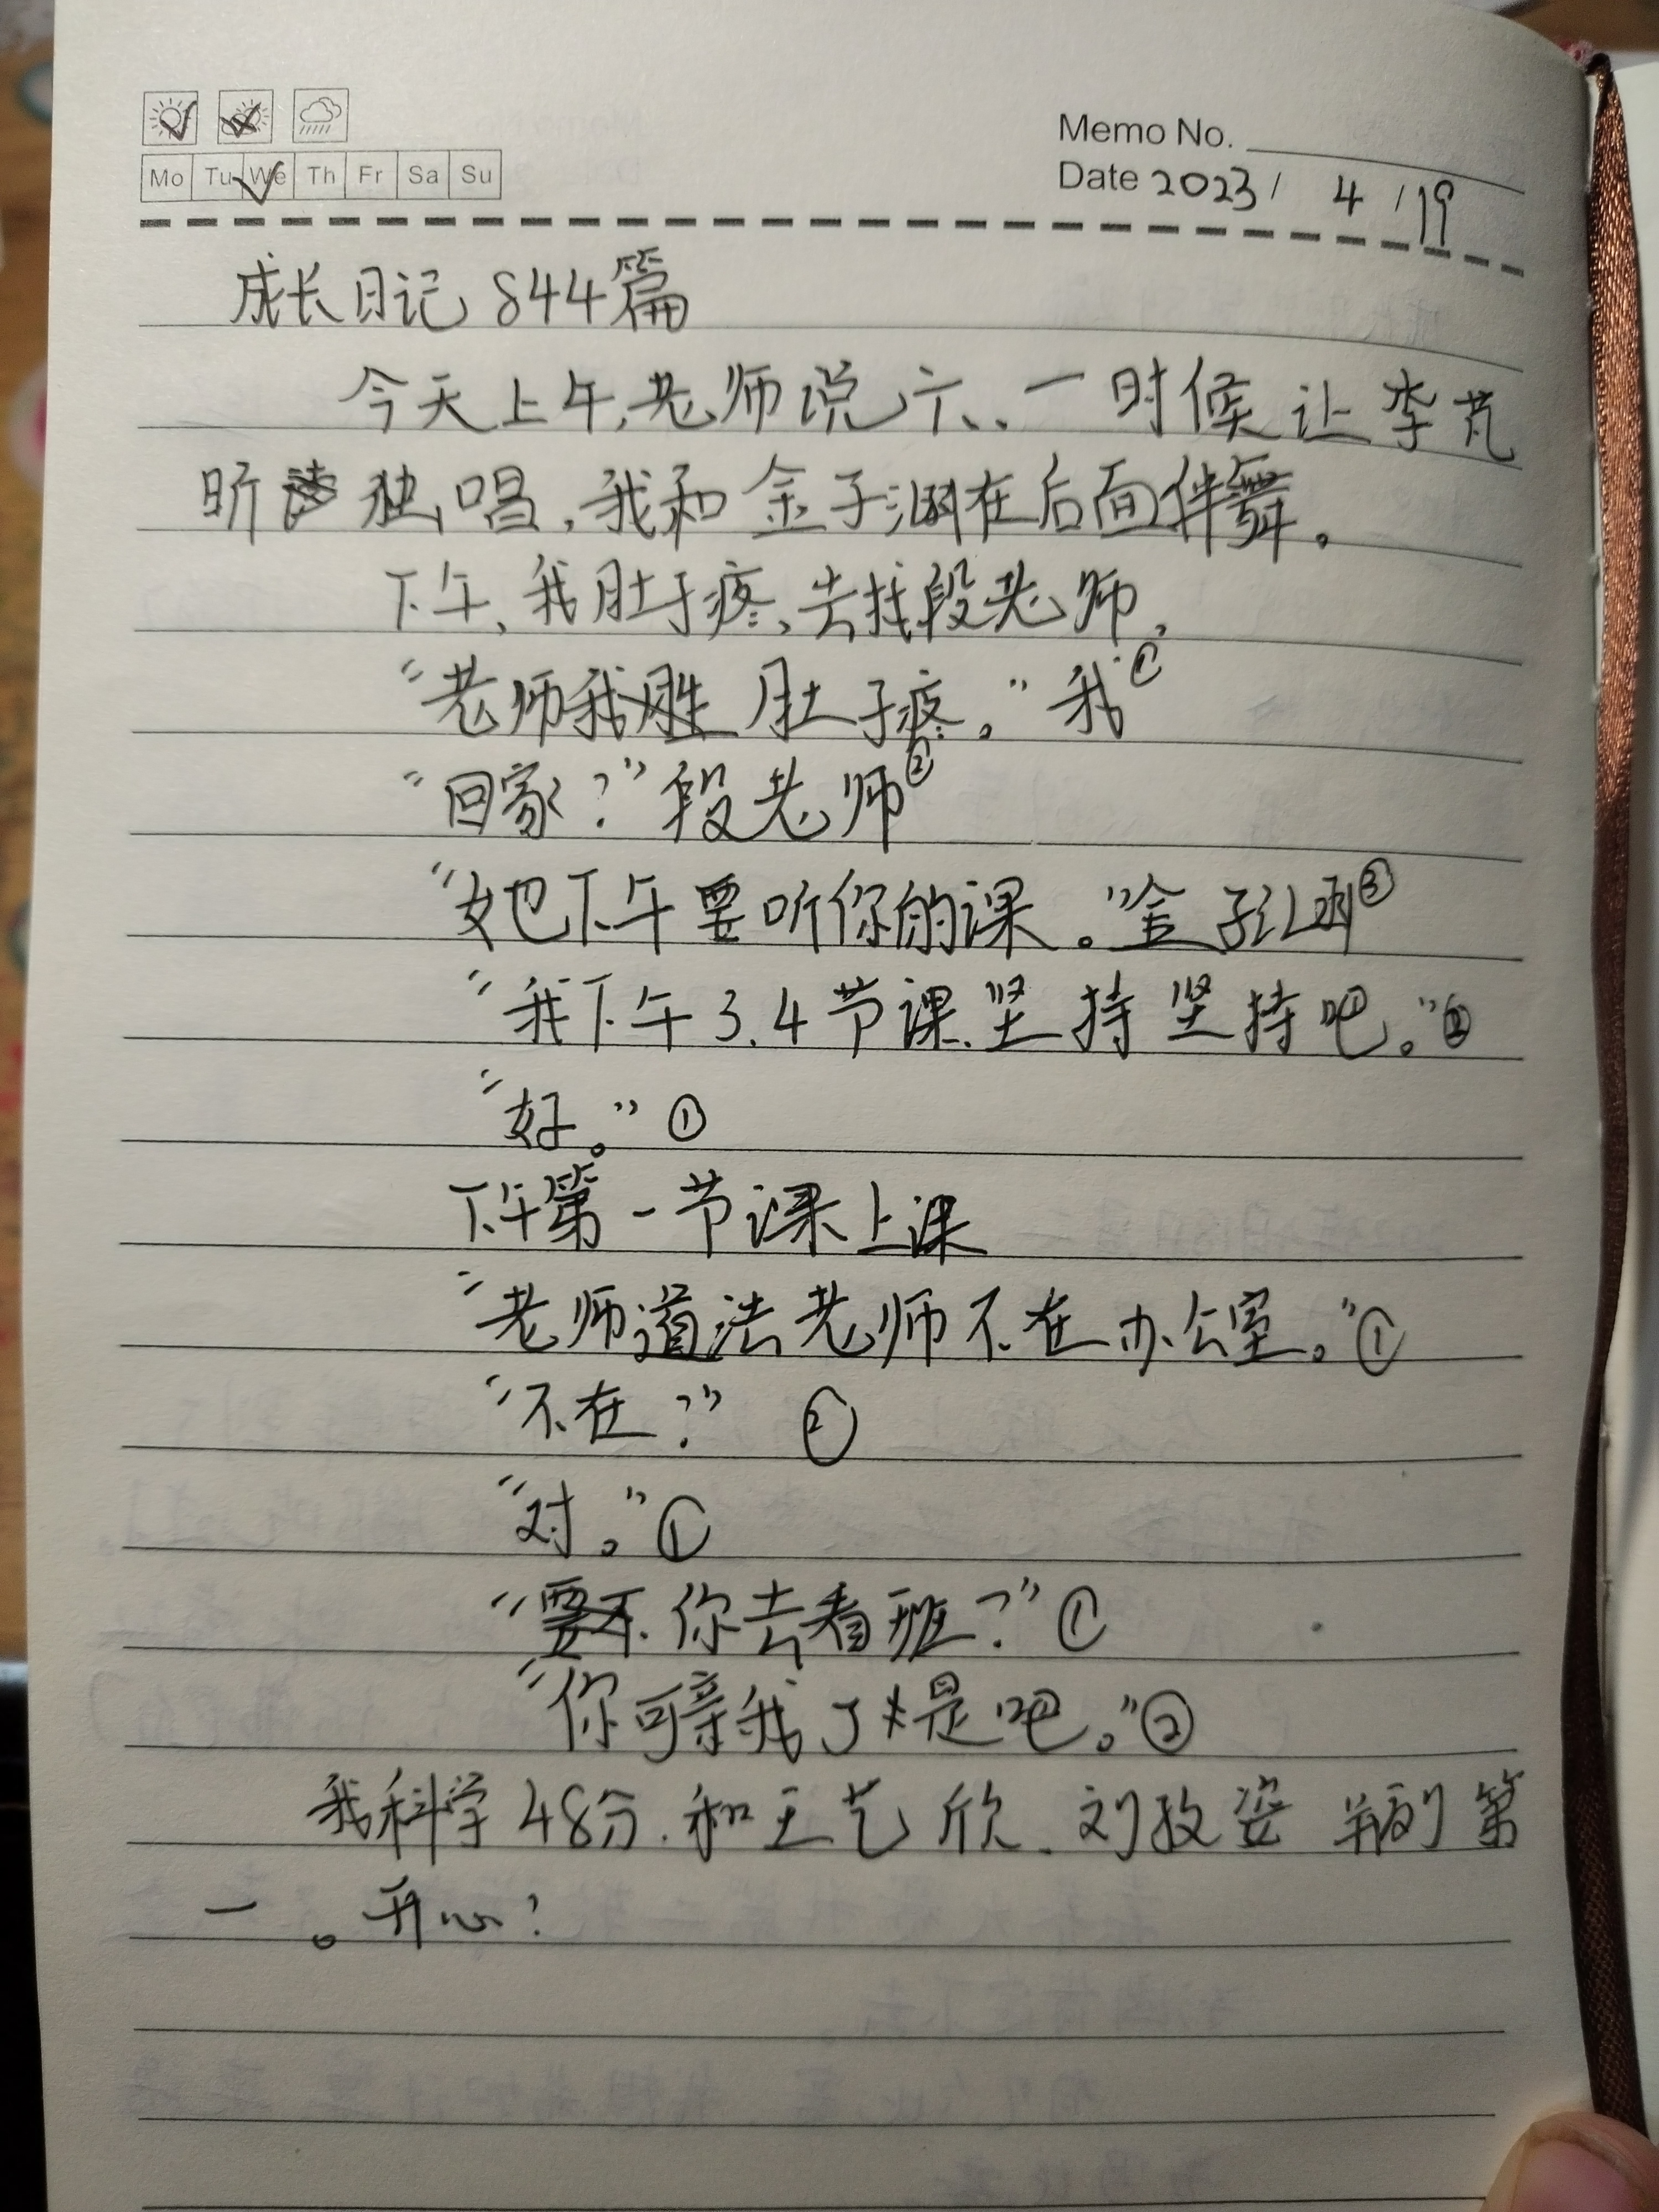 Mo Tu We Th Fr Sa Su
Memo No.
Date 2023 / 4 / 19
成长日记 844篇
今天上午,老师说六、一时候让李芃
昕独唱,我和金子涵在后面伴舞。
下午、我肚子疼,去找段老师,
“老师我肚子疼。”我①
“回家?”段老师②
“她下午要听你的课。”金子涵③
“我下午3.4节课.坚持坚持吧。”②
“好。”①
下午第一节课上课
“老师道法老师不在办公室。”①
“不在?”②
“对。”①
“要不你去看班?”①
“你可亲我了是吧。”②
我科学48分.和王艺欣、刘孜姿并列第
一。开心!